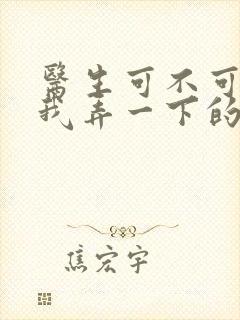 醫生可不可
我弄一下的
焦宏宇